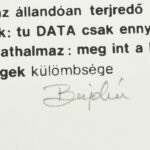 az állandóan terjredő
k: tu DATA csak enny
athalmaz: meg int a l
gek külömbsége